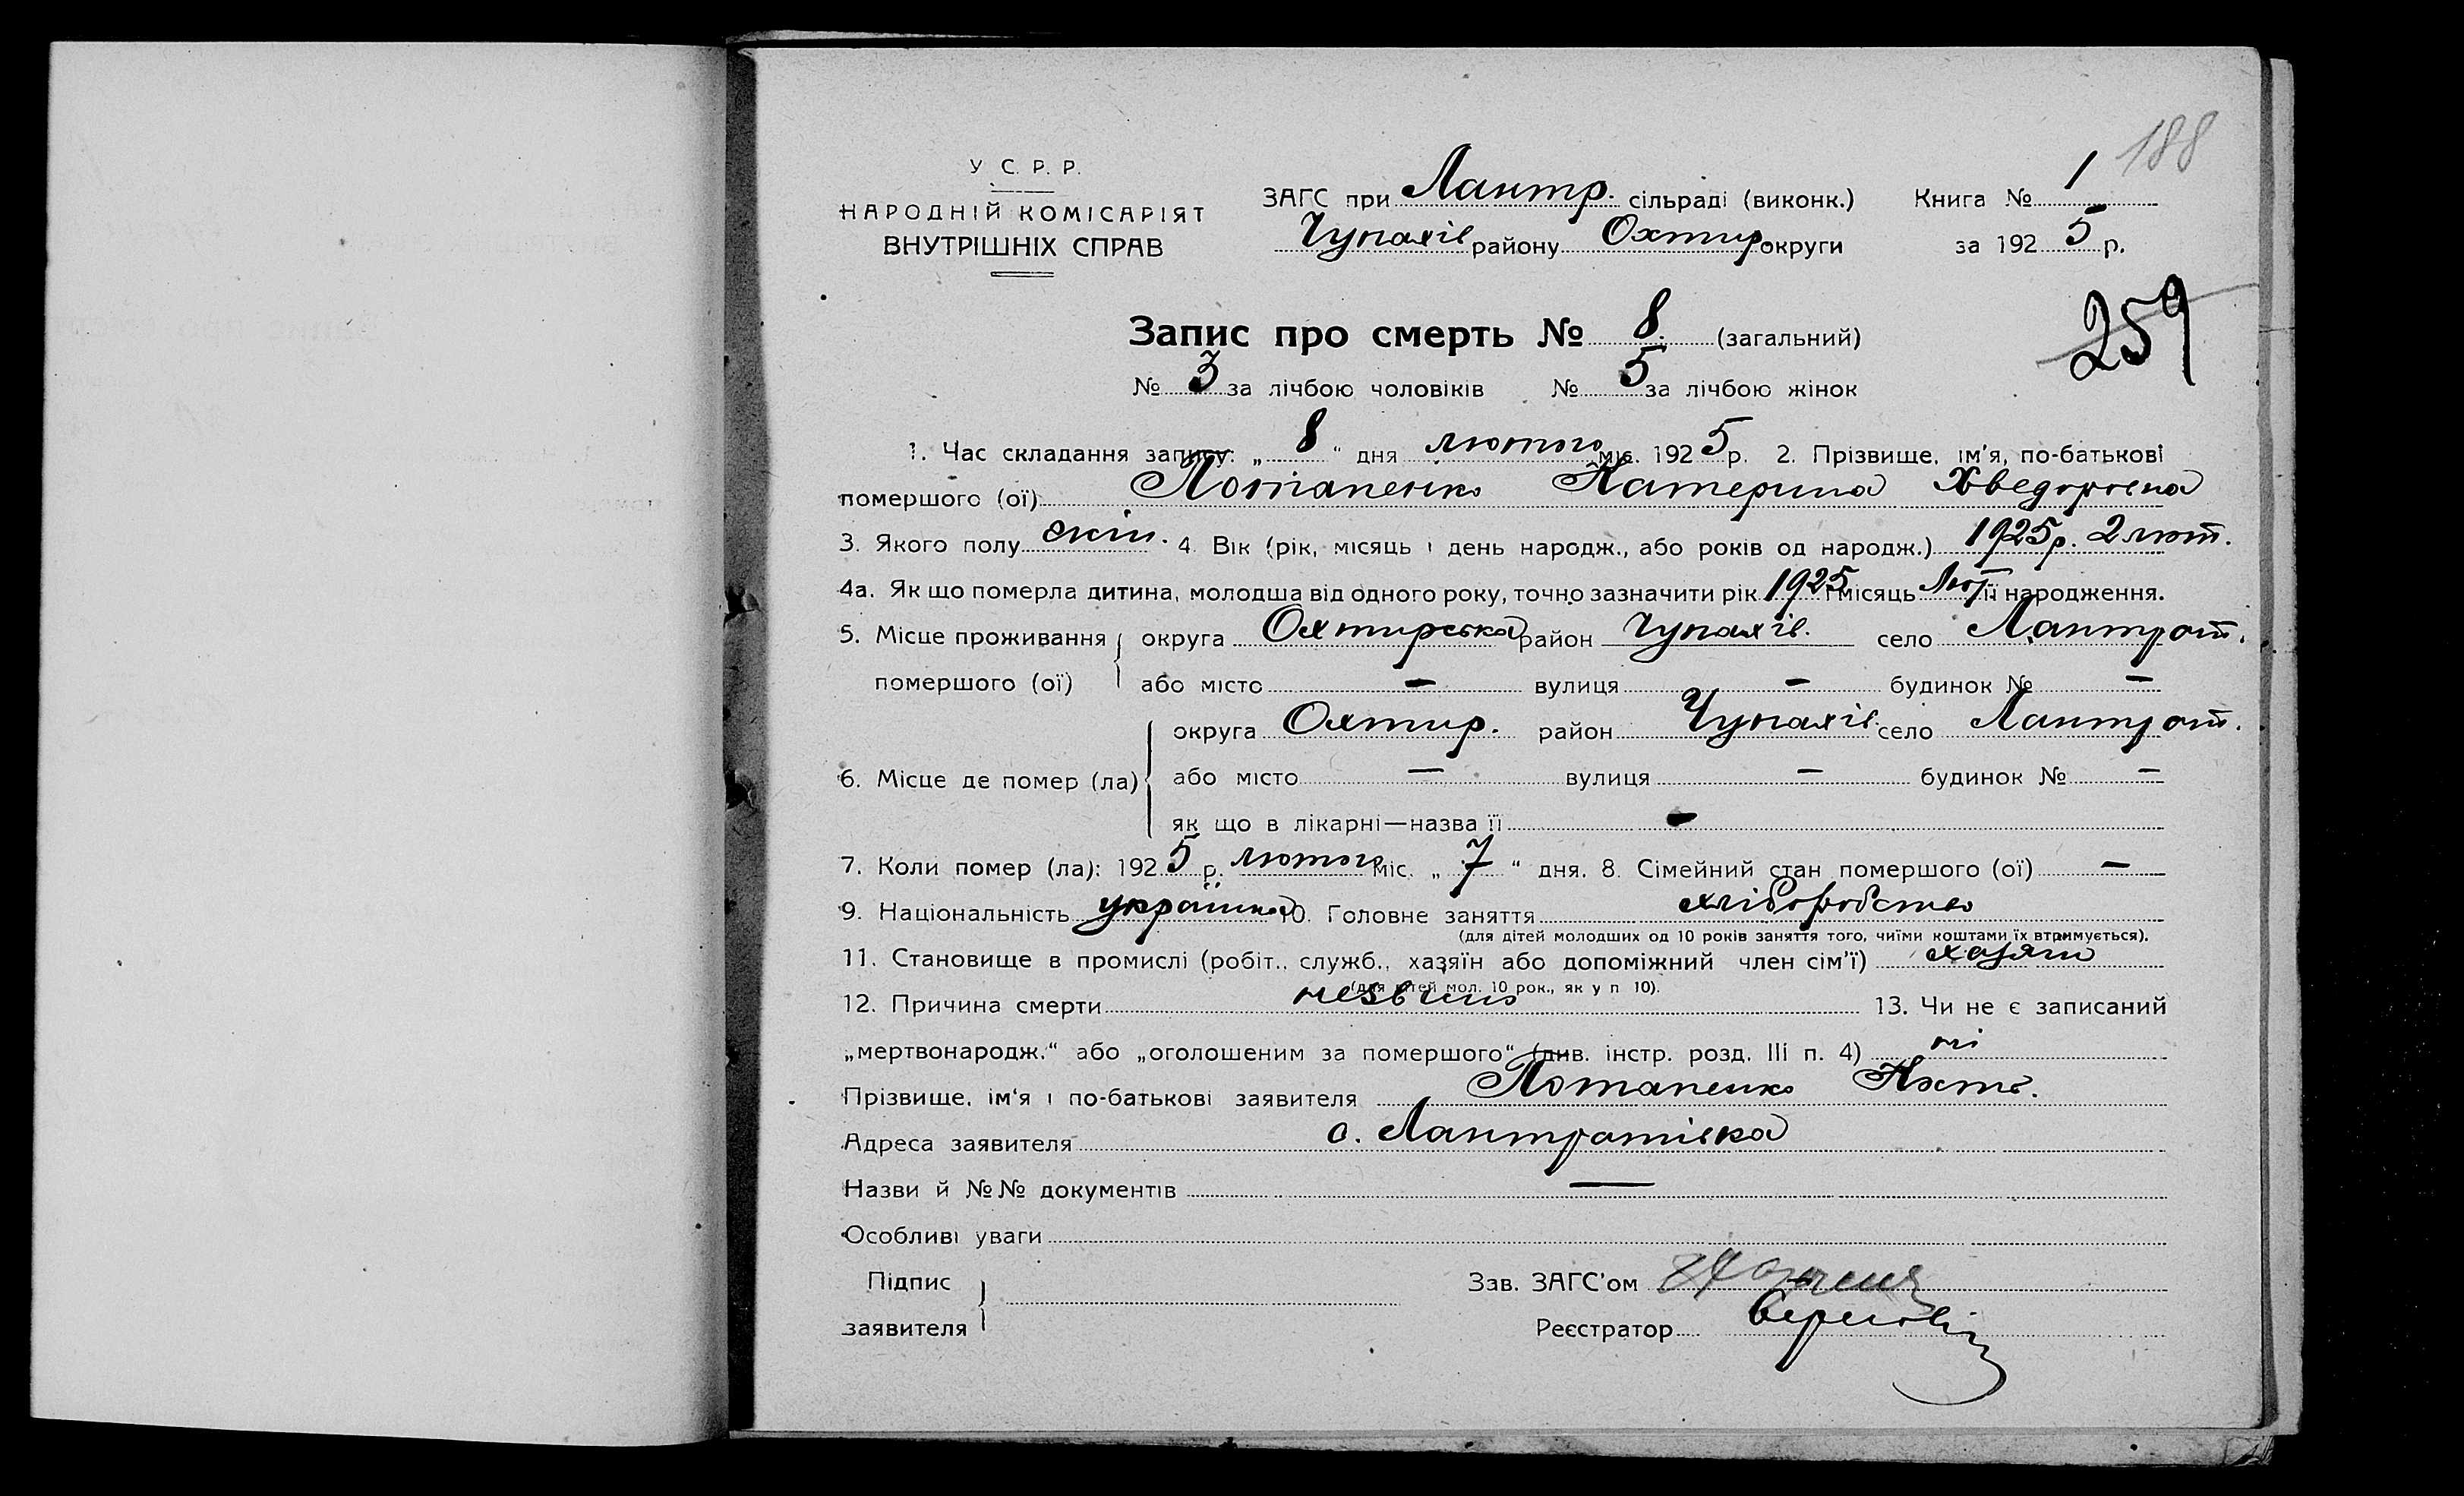 188
У С. Р. Р.
НАРОДНІЙ КОМІСАРІЯТ
ВНУТРІШНІХ СПРАВ
ЗАГС при Лантр. сільраді (виконк.) Книга № 1
Чупахів району Охтир округи за 1925 р.
259
Запис про смерть № 8. (загальний)
№ 3 за лічбою чоловіків № 5 за лічбою жінок
1. Час складання запису: „ 8 “ дня лютого міс. 1925 р. 2. Прізвище, ім'я, по-батькові
помершого (ої) Потапенко Катерина Хведоровна
3. Якого полу жін. 4. Вік (рік, місяць і день народж., або років од народж.) 1925 р. 2 лют.
4а. Як що померла дитина, молодша від одного року, точно зазначити рік 1925 і місяць Лют її народження.
5. Місце проживання округа Охтирська район Чупахів. село Лантрат.
помершого (ої) або місто — вулиця — будинок № —
округа Охтир. район Чупахів. село Лантрат.
6. Місце де помер (ла) або місто — вулиця — будинок № —
як що в лікарні—назва її —
7. Коли помер (ла): 1925 р. лютого міс. „ 7 “ дня. 8. Сімейний стан помершого (ої) —
9. Національність українка 10. Головне заняття хліборобство
(для дітей молодших од 10 років заняття того, чиїми коштами їх втримується).
11. Становище в промислі (робіт., служб., хазяїн або допоміжний член сім'ї) хазяїн
(для дітей мол. 10 рок., як у п 10).
12. Причина смерти 13. Чи не є записаний
„мертвонародж.“ або „оголошеним за помершого“ (див. інстр. розд. III п. 4) ні
Прізвище, ім'я і по-батькові заявителя Потапенко
Адреса заявителя с. Лантратівка
Назви й №№ документів —
Особливі уваги
Підпис
заявителя
Зав. ЗАГС'ом
Реєстратор